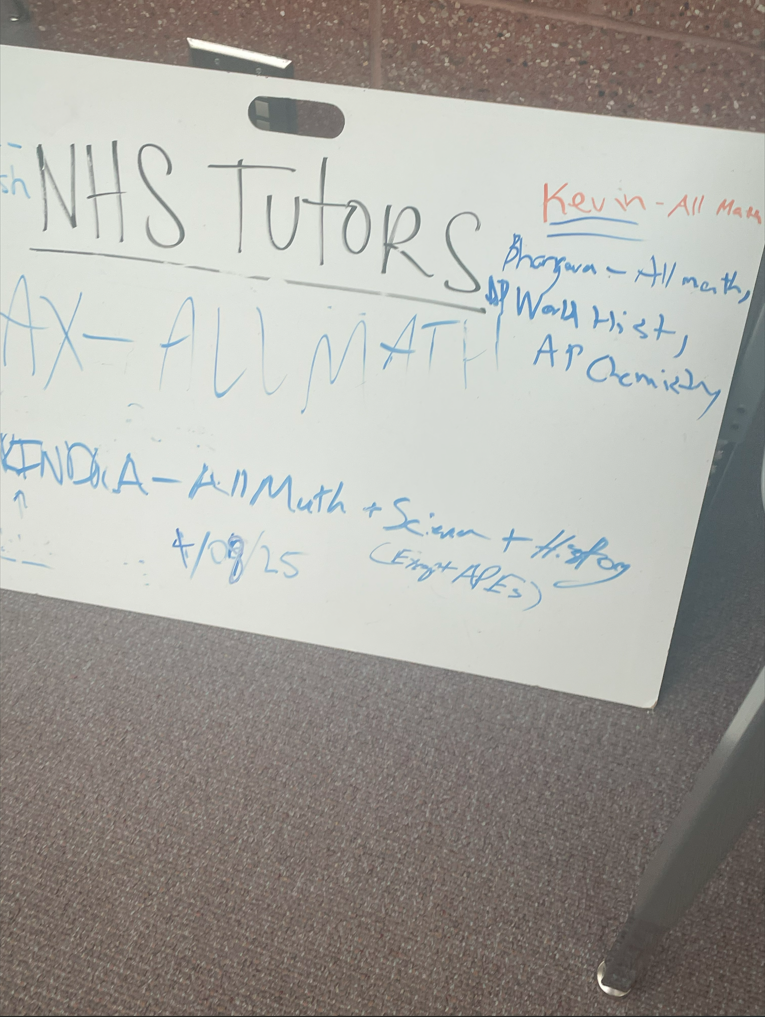 NHS TUTORS
Kevin - All Math
Bhargava - All math,
AP World Hist,
AP Chemistry
AX - ALL MATH
A - All Math + Science + History
(Except APEs)
4/09/25